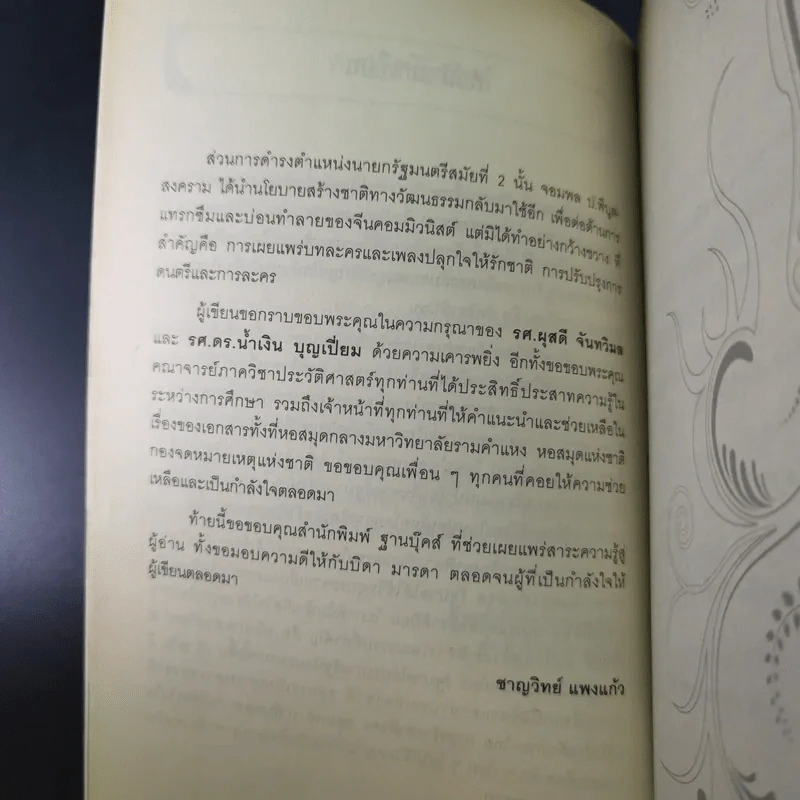 ส่วนการดำรงตำแหน่งนายกรัฐมนตรีสมัยที่ 2 นั้น จอมพล ป.พิบูล
สงคราม ได้นำนโยบายสร้างชาติทางวัฒนธรรมกลับมาใช้อีก เพื่อต่อต้านการ
แทรกซึมและบ่อนทำลายของจีนคอมมิวนิสต์ แต่มิได้ทำอย่างกว้างขวาง ที่
สำคัญคือ การเผยแพร่บทละครและเพลงปลุกใจให้รักชาติ การปรับปรุงการ
ดนตรีและการละคร
ผู้เขียนขอกราบขอบพระคุณในความกรุณาของ รศ.ผุสดี จันทวิมล
และ รศ.ดร.น้ำเงิน บุญเปี่ยม ด้วยความเคารพยิ่ง อีกทั้งขอขอบพระคุณ
คณาจารย์ภาควิชาประวัติศาสตร์ทุกท่านที่ได้ประสิทธิ์ประสาทความรู้ใน
ระหว่างการศึกษา รวมถึงเจ้าหน้าที่ทุกท่านที่ให้คำแนะนำและช่วยเหลือใน
เรื่องของเอกสารทั้งที่หอสมุดกลางมหาวิทยาลัยรามคำแหง หอสมุดแห่งชาติ
กองจดหมายเหตุแห่งชาติ ขอขอบคุณเพื่อน ๆ ทุกคนที่คอยให้ความช่วย
เหลือและเป็นกำลังใจตลอดมา
ท้ายนี้ขอขอบคุณสำนักพิมพ์ ฐานบุ๊คส์ ที่ช่วยเผยแพร่สาระความรู้สู่
ผู้อ่าน ทั้งขอมอบความดีให้กับบิดา มารดา ตลอดจนผู้ที่เป็นกำลังใจให้
ผู้เขียนตลอดมา
ชาญวิทย์ แพงแก้ว